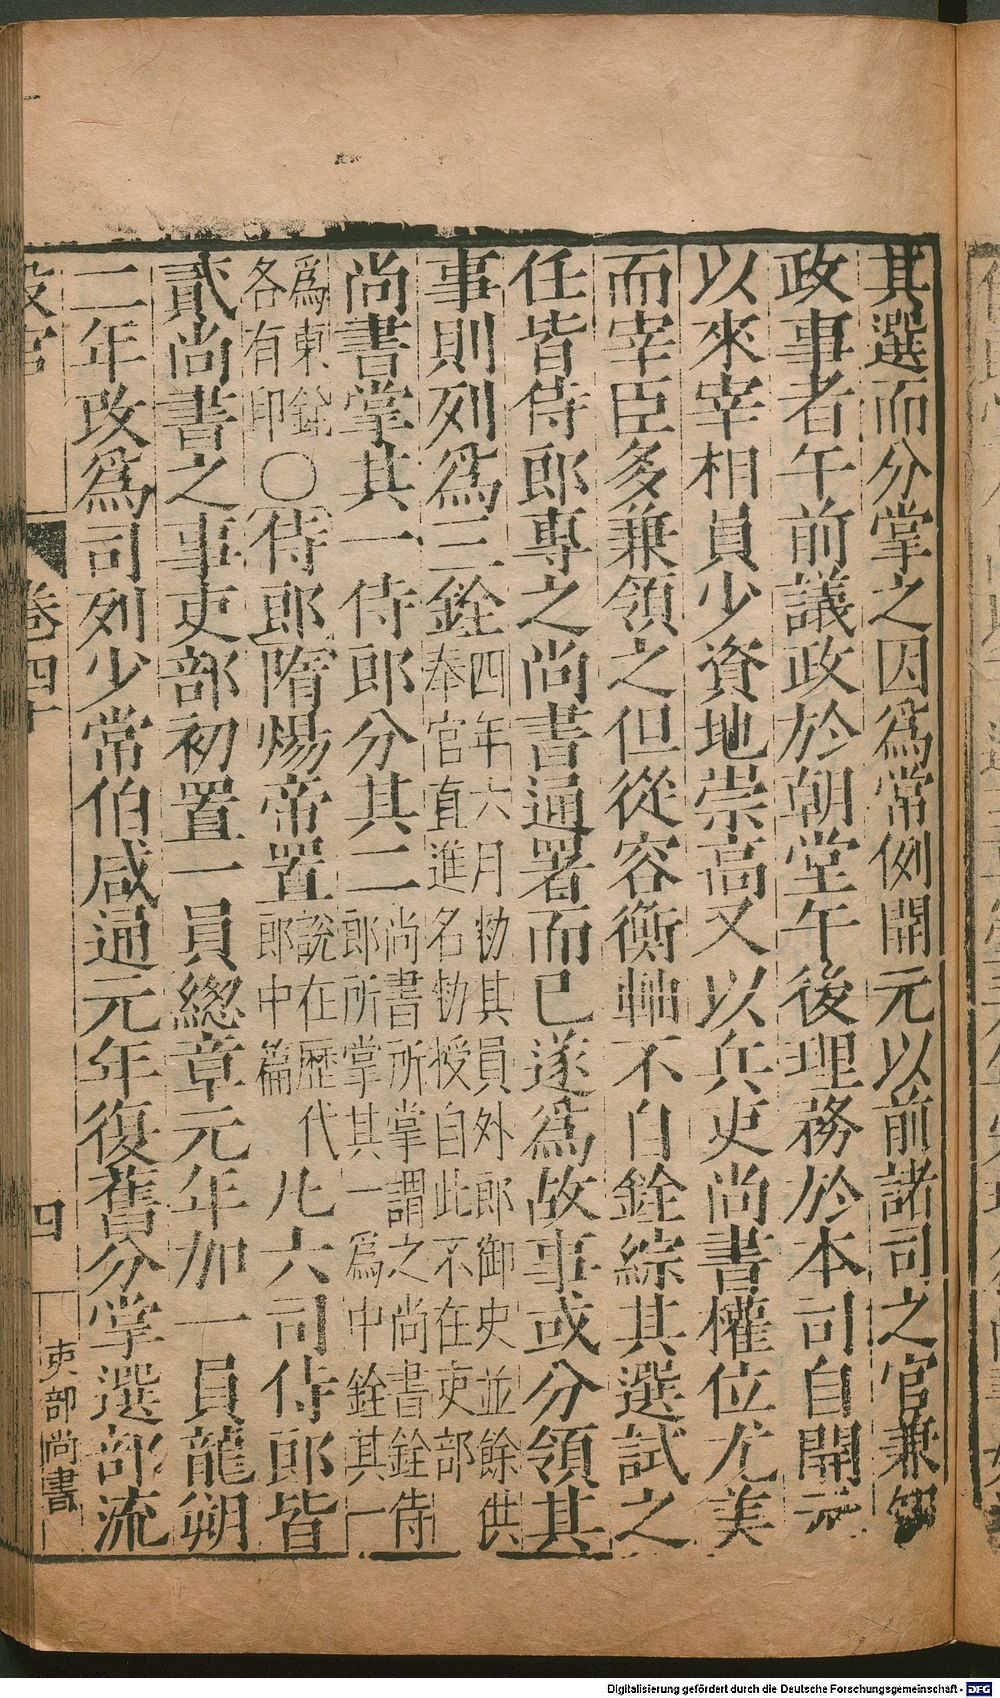 其選而分掌之因爲常例開元以前諸司之官兼知
政事者午前議政於朝堂午後理務於本司自開元
以來宰相員少資地崇高又以兵吏尚書權位尤美
而宰臣多兼領之但從容衡軸不自銓綜其選試之
任皆侍郎專之尚書通署而已遂爲故事或分領其
事則列爲三銓四年六月勑其員外郎御史並餘供
奉官直進名勑授自此不在吏部
尚書掌其一侍郎分其二尚書所掌謂之尚書銓侍
郎所掌其一爲中銓其一
爲東銓
各有印〇侍郎隋煬帝置說在歷代
郎中篇凡六司侍郎皆
貳尚書之事吏部初置一員總章元年加一員龍朔
二年改爲司列少常伯咸通元年復舊分掌選部流
設官
卷四十
四
吏部尚書
Digitalisierung gefördert durch die Deutsche Forschungsgemeinschaft - DFG